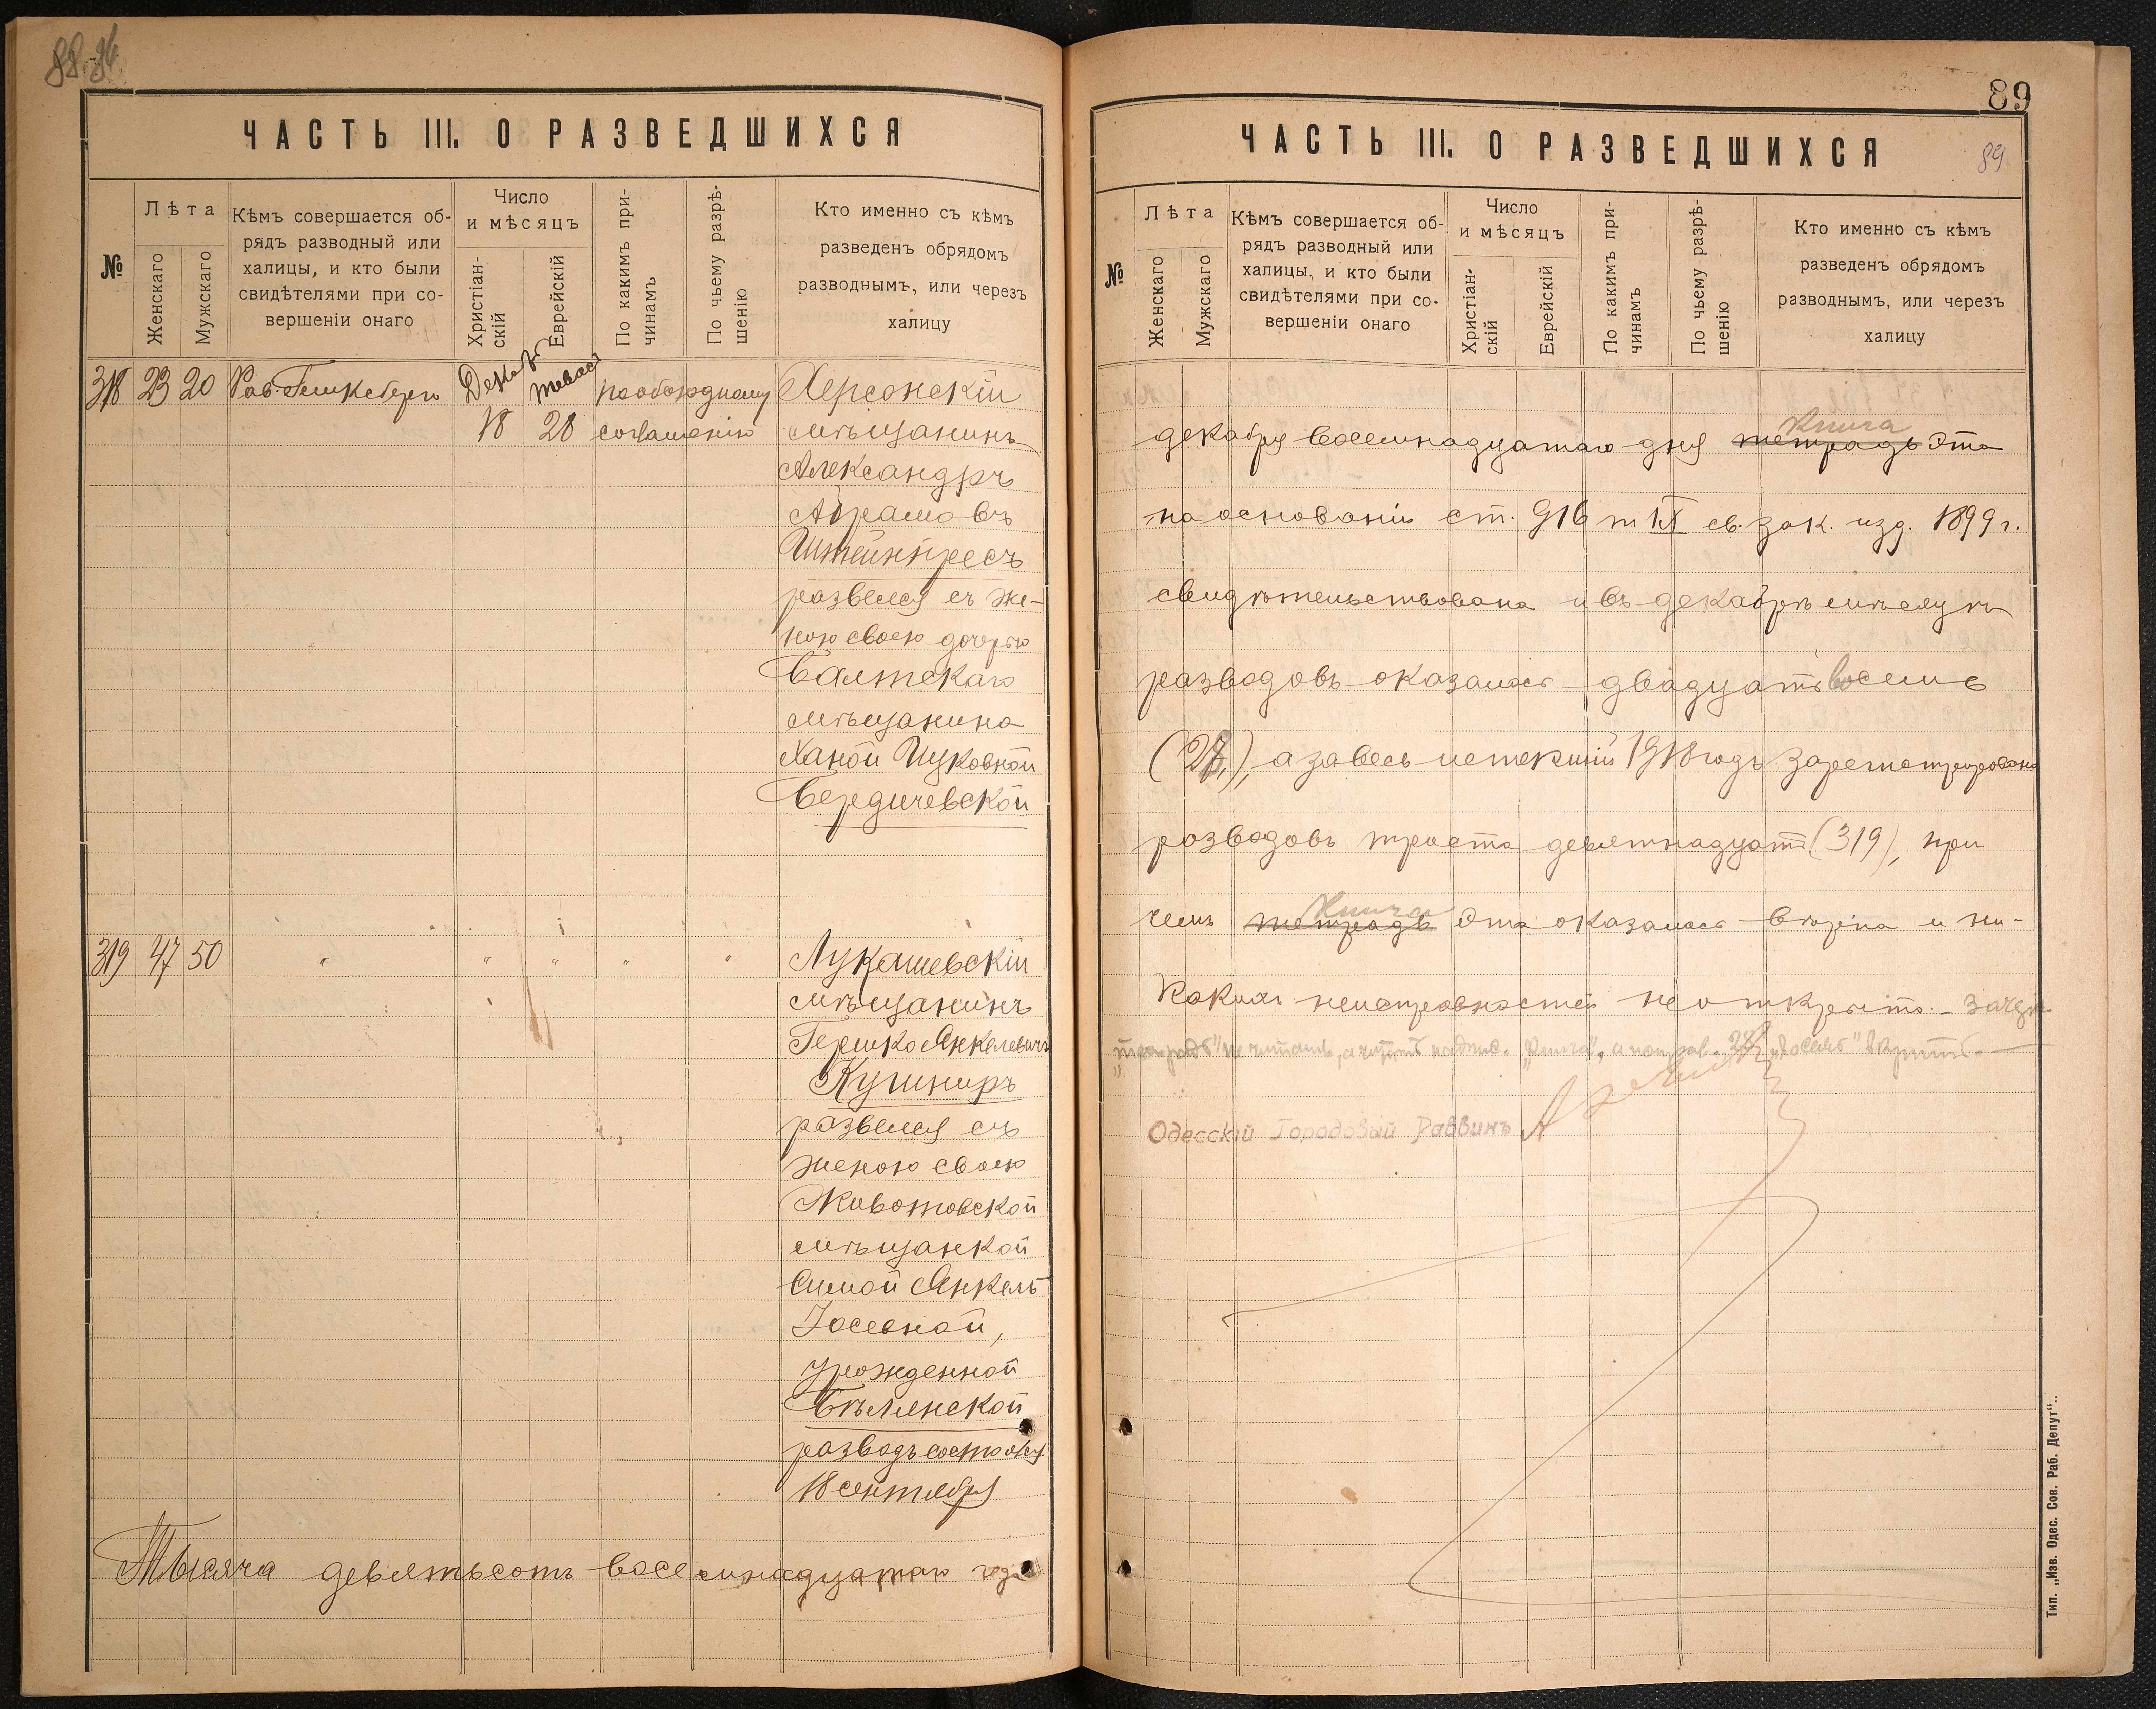 88
ЧАСТЬ III. О РАЗВЕДШИХСЯ
№
Лѣта
Женскаго
Мужскаго
Кѣмъ совершается об-
рядъ разводный или
халицы, и кто были
свидѣтелями при со-
вершеніи онаго
Число
и мѣсяцъ
Христіан-
скій
Еврейскій
По какимъ при-
чинамъ
По чьему разрѣ-
шенію
Кто именно съ кѣмъ
разведенъ обрядомъ
разводнымъ, или черезъ
халицу
318 23 20 Рав. Декаб
18 28 по обоюдному
соглашенію
Херсонскій
мѣщанинъ
Александръ
Абрамовъ
Штейнпресъ
развелся съ же-
ною своею дочерью
Балтскаго
мѣщанина
Ханой Ицковной
Бердичевской
319 47 50 " " " " "
Лукашевскій
мѣщанинъ
Гершко Янкелевичъ
Кушниръ
развелся съ
женою своею
Животовской
мѣщанкой
Симой Янкель
Іосевной,
урожденной
Бѣлинской
разводъ состоялся
18 сентября
Тысяча девятьсотъ восемнадцатаго года
89
ЧАСТЬ III. О РАЗВЕДШИХСЯ
89
№
Лѣта
Женскаго
Мужскаго
Кѣмъ совершается об-
рядъ разводный или
халицы, и кто были
свидѣтелями при со-
вершеніи онаго
Число
и мѣсяцъ
Христіан-
скій
Еврейскій
По какимъ при-
чинамъ
По чьему разрѣ-
шенію
Кто именно съ кѣмъ
разведенъ обрядомъ
разводнымъ, или черезъ
халицу
книга
декабря восемнадцатаго дня тетрадь эта
на основаніи ст. 916 т IX св. зак. изд. 1899 г.
свидѣтельствована и въ декабрѣ мѣсяцѣ
разводовъ оказалось двадцать восемь
(28), а за весь истекшій 1918 годъ зарегистрировано
разводовъ триста девятнадцать (319), при
книга
чемъ тетрадь эта оказалась вѣрна и ни-
какихъ неисправностей не открыто. - Зачеркн.
"тетрадь" не читать, а читать надпис. "книга", а поправ. "28" и "восемь" вѣрить. -
Одесскій Городовый Раввинъ
Тип. „Изв. Одес. Сов. Раб. Депут“..